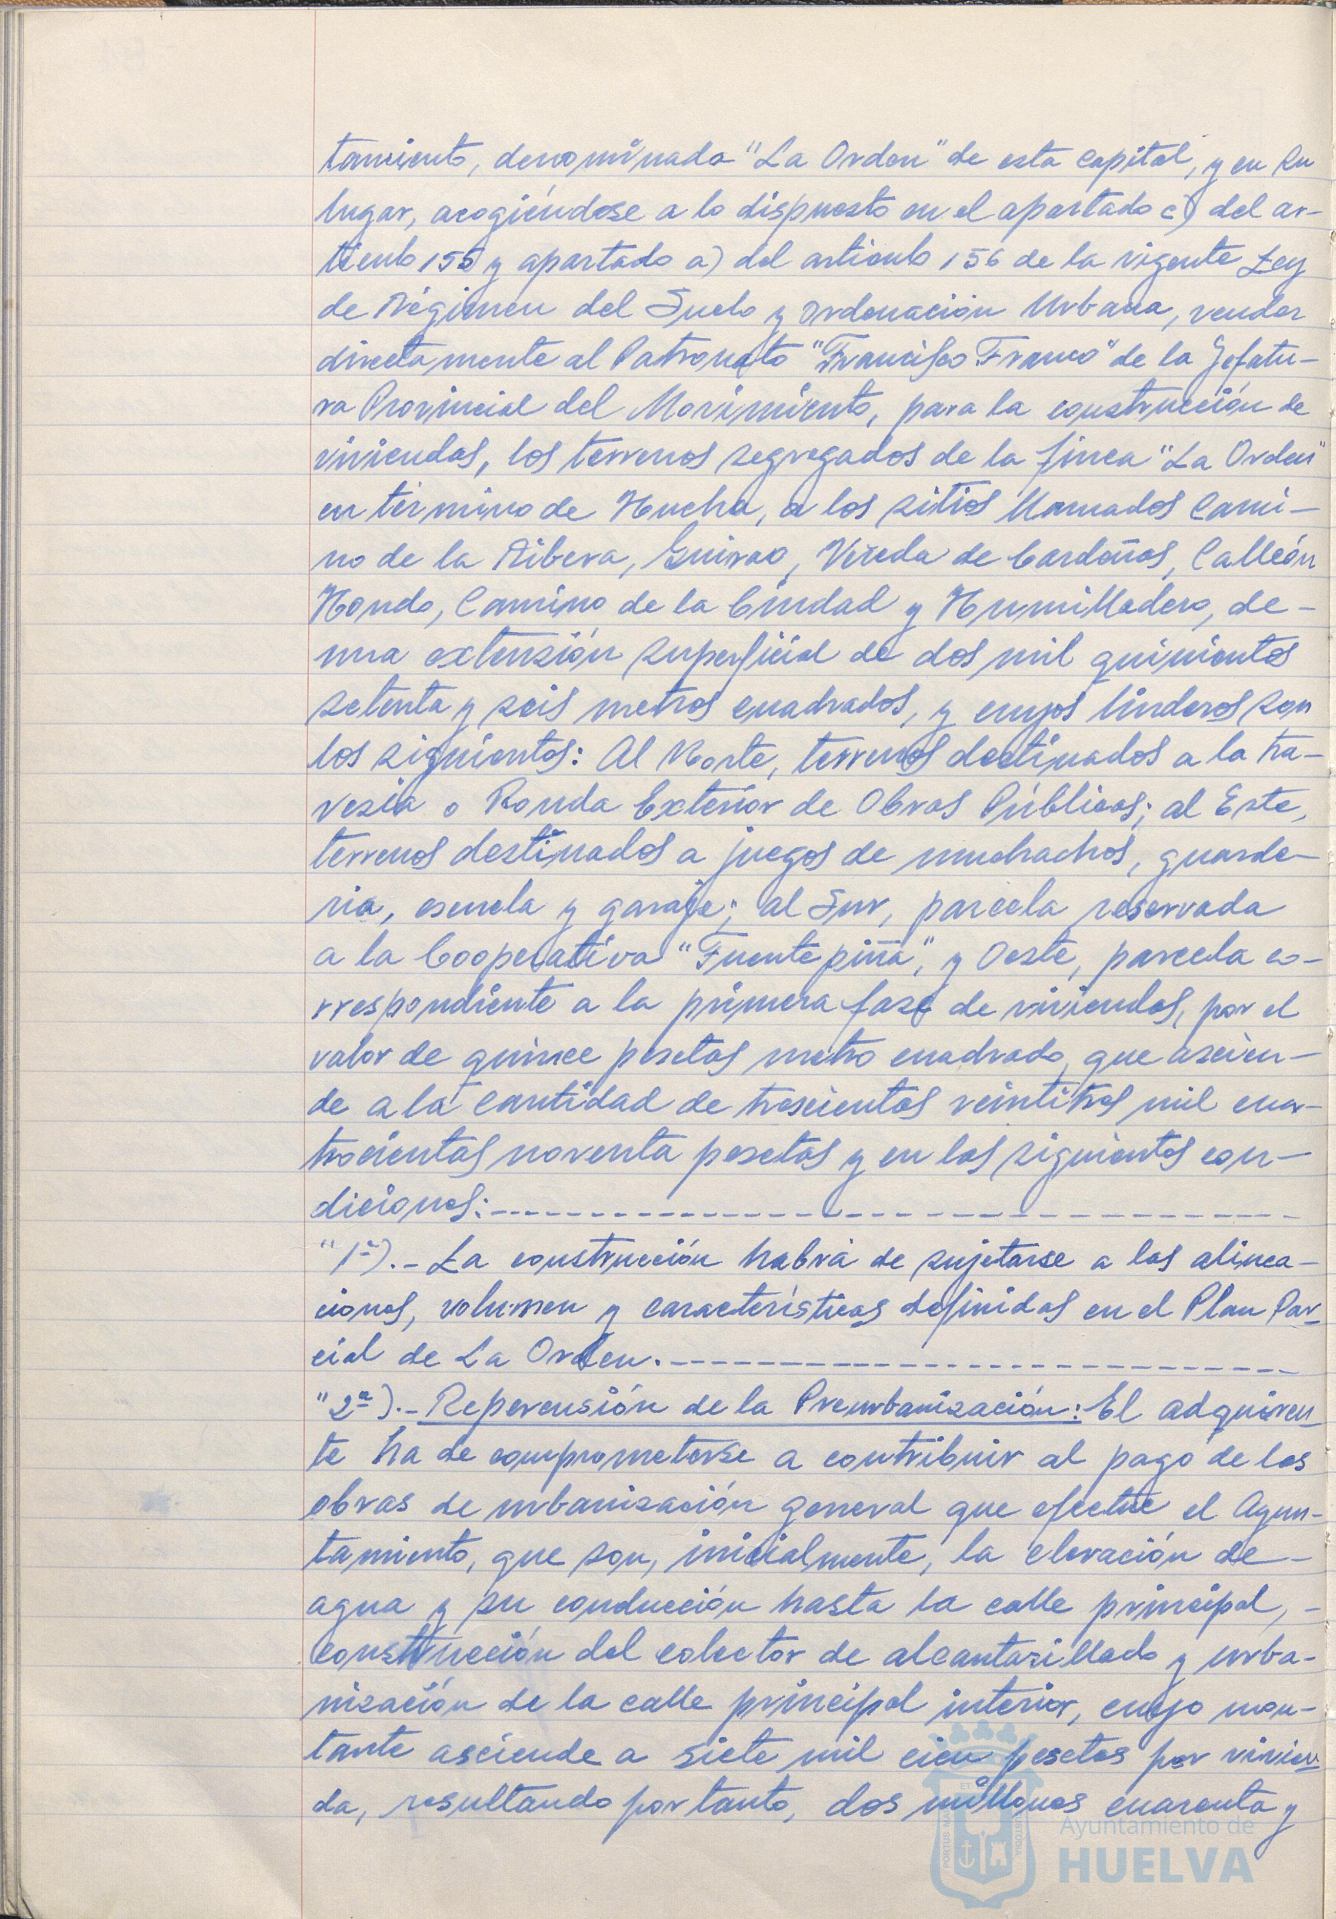 tamiento, denominada "La Orden" de esta capital, y en su
lugar, acogiéndose a lo dispuesto en el apartado c) del ar-
tículo 155 y apartado a) del artículo 156 de la vigente Ley
de Régimen del Suelo y Ordenación Urbana, vender
directamente al Patronato "Francisco Franco" de la Jefatu-
ra Provincial del Movimiento, para la construcción de
viviendas, los terrenos segregados de la finca "La Orden"
en término de Huelva, a los sitios llamados Cami-
no de la Ribera, Guirao, Vereda de Cardeñas, Calleón
Hondo, Camino de la Ciudad y Humilladero, de-
una extensión superficial de dos mil quinientos
setenta y seis metros cuadrados, y cuyos linderos son
los siguientes: Al Norte, terrenos destinados a la tra-
vesía o Ronda Exterior de Obras Públicas; al Este,
terrenos destinados a juegos de muchachos, guarde-
ria, escuela y garaje; al Sur, parcela reservada
a la Cooperativa "Fuentepiña", y Oeste, parcela co-
rrespondiente a la primera fase de viviendas, por el
valor de quince pesetas metro cuadrado, que ascien-
de a la cantidad de trescientas veintitres mil cua-
trocientas noventa pesetas y en las siguientes con-
diciones:
"1ª).- La construcción habrá de sujetarse a las alinea-
ciones, volumen y características definidas en el Plan Par-
cial de La Orden.
"2ª).- Repercusión de la Preurbanización: El adquiren-
te ha de comprometerse a contribuir al pago de las
obras de urbanización general que efectúe el Ayun-
tamiento, que son, inicialmente, la elevación de-
agua y su conducción hasta la calle principal,-
construcción del colector de alcantarillado y urba-
nización de la calle principal interior, cuyo mon-
tante asciende a siete mil cien pesetas por vivien
da, resultando por tanto, dos millones cuarenta y
Ayuntamiento de
HUELVA